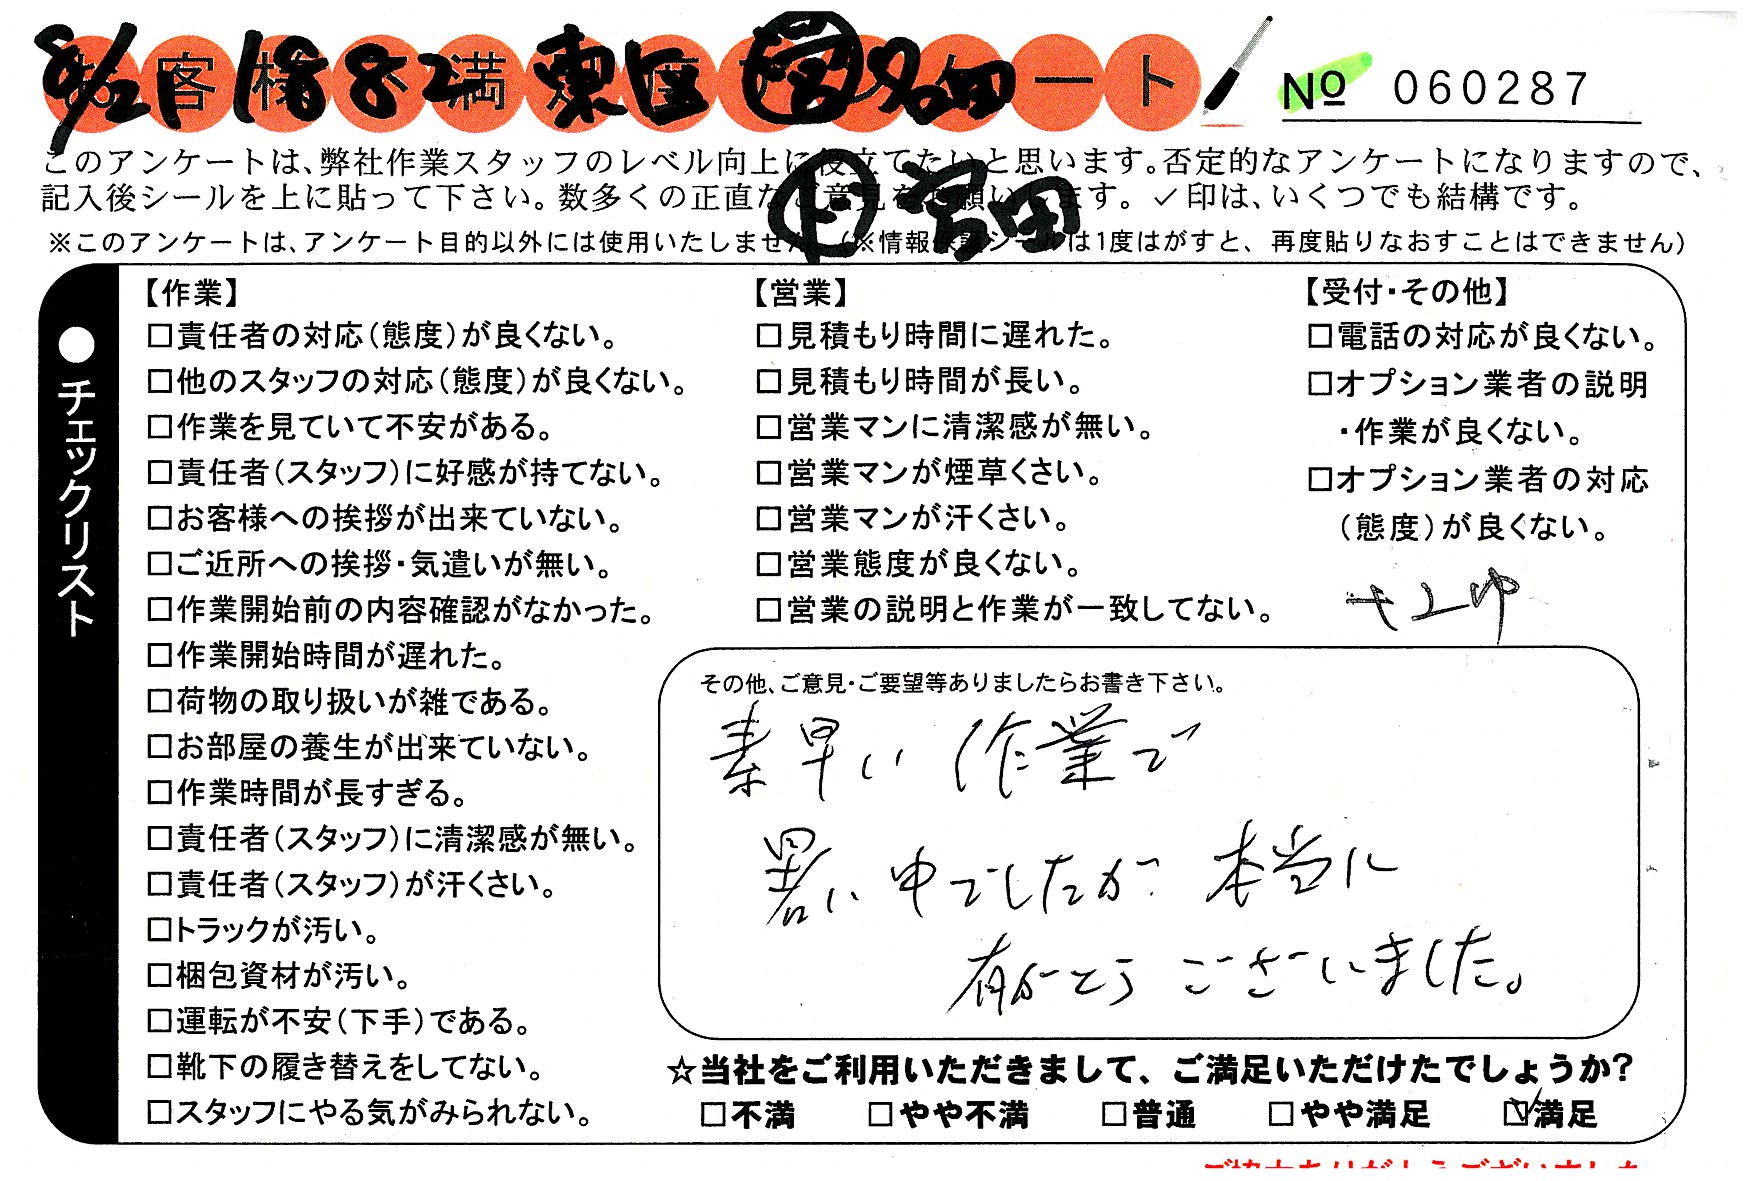 8/21 1882 東区 営 名田
お客様 満 度 ート
No 060287
このアンケートは、弊社作業スタッフのレベル向上に役立てたいと思います。否定的なアンケートになりますので、
記入後シールを上に貼って下さい。数多くの正直なご意見をお願いします。✓印は、いくつでも結構です。
宮田
※このアンケートは、アンケート目的以外には使用いたしません。(※情報保護シールは1度はがすと、再度貼りなおすことはできません)
●チェックリスト
【作業】
□責任者の対応(態度)が良くない。
□他のスタッフの対応(態度)が良くない。
□作業を見ていて不安がある。
□責任者(スタッフ)に好感が持てない。
□お客様への挨拶が出来ていない。
□ご近所への挨拶・気遣いが無い。
□作業開始前の内容確認がなかった。
□作業開始時間が遅れた。
□荷物の取り扱いが雑である。
□お部屋の養生が出来ていない。
□作業時間が長すぎる。
□責任者(スタッフ)に清潔感が無い。
□責任者(スタッフ)が汗くさい。
□トラックが汚い。
□梱包資材が汚い。
□運転が不安(下手)である。
□靴下の履き替えをしてない。
□スタッフにやる気がみられない。
【営業】
□見積もり時間に遅れた。
□見積もり時間が長い。
□営業マンに清潔感が無い。
□営業マンが煙草くさい。
□営業マンが汗くさい。
□営業態度が良くない。
□営業の説明と作業が一致してない。
【受付・その他】
□電話の対応が良くない。
□オプション業者の説明
・作業が良くない。
□オプション業者の対応
(態度)が良くない。
その他、ご意見・ご要望等ありましたらお書き下さい。
素早い作業で
暑い中でしたが 本当に
有がとう ございました。
☆当社をご利用いただきまして、ご満足いただけたでしょうか?
□不満 □やや不満 □普通 □やや満足 ☑満足
ご協力ありがとうございました